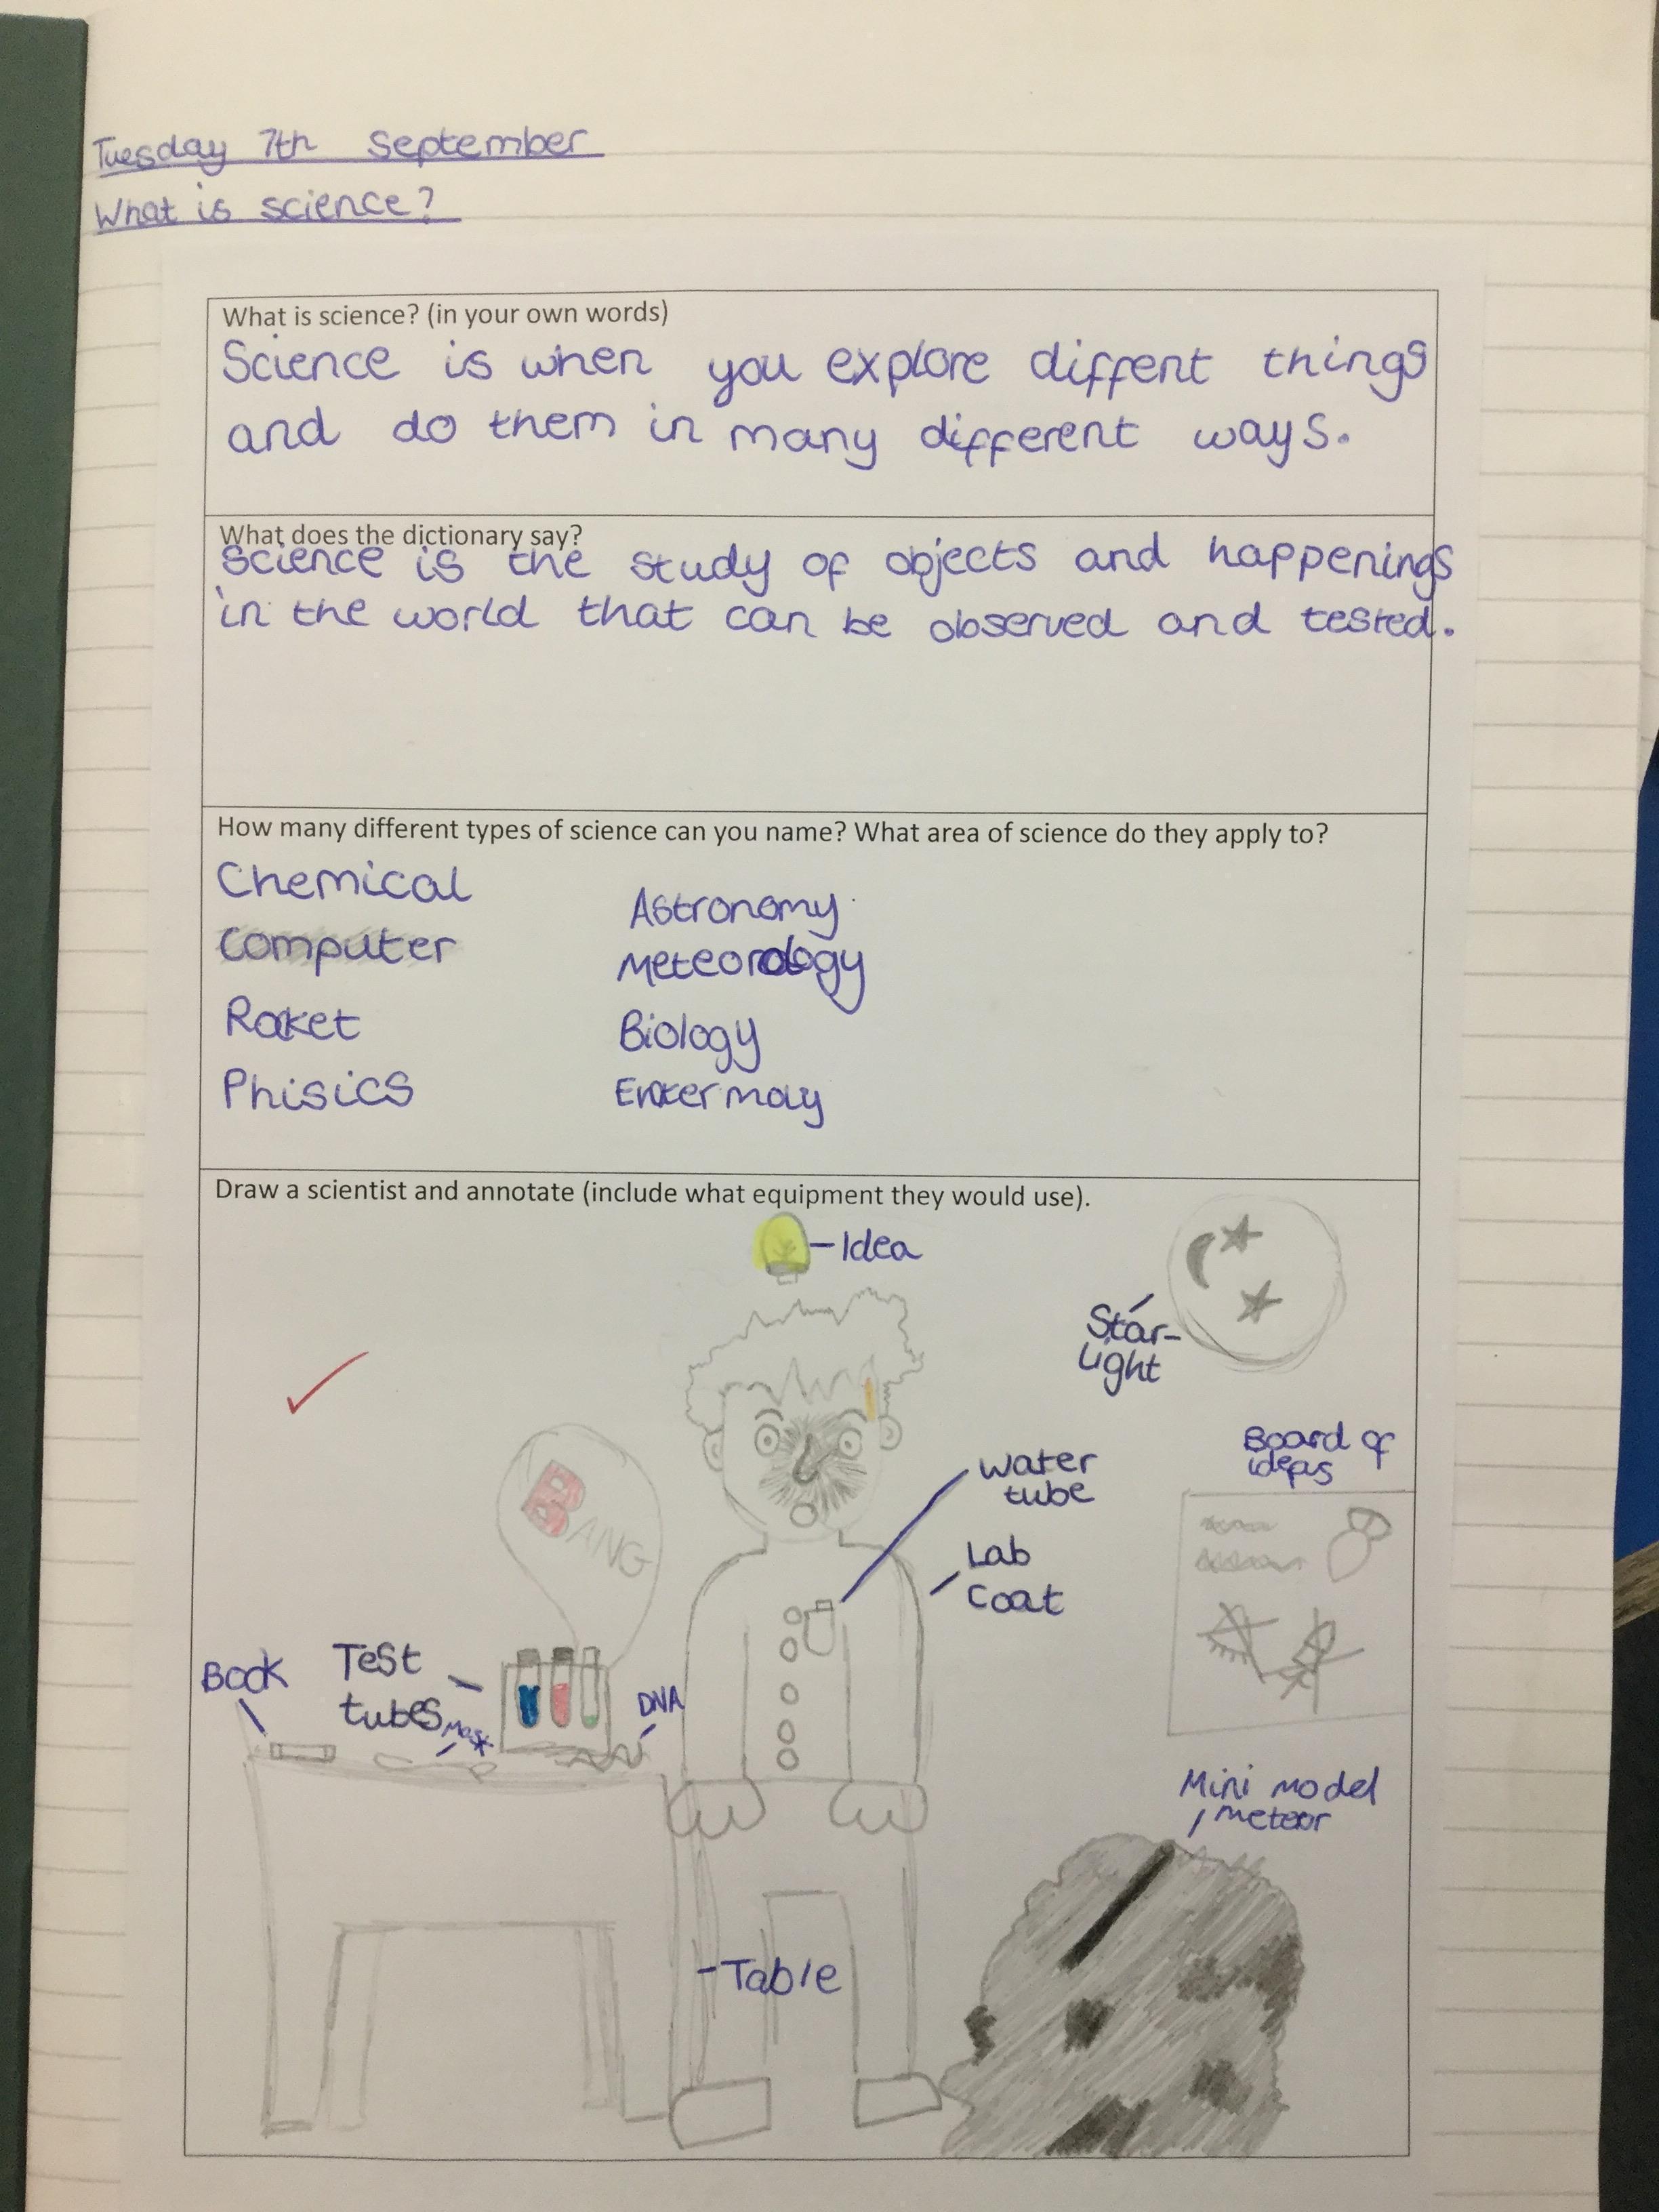 Tuesday 7th September
What is science?
What is science? (in your own words)
Science is when you explore diffent things
and do them in many different ways.
What does the dictionary say?
Science is the study of objects and happenings
in the world that can be observed and tested.
How many different types of science can you name? What area of science do they apply to?
Chemical
Computer
Rocket
Phisics
Astronomy
Meteorology
Biology
Draw a scientist and annotate (include what equipment they would use).
Idea
Star-
Light
Board of
ideas
Water
tube
Lab
Coat
BANG
Book
Test
tubes
Mask
DNA
Mini model
meteor
Table